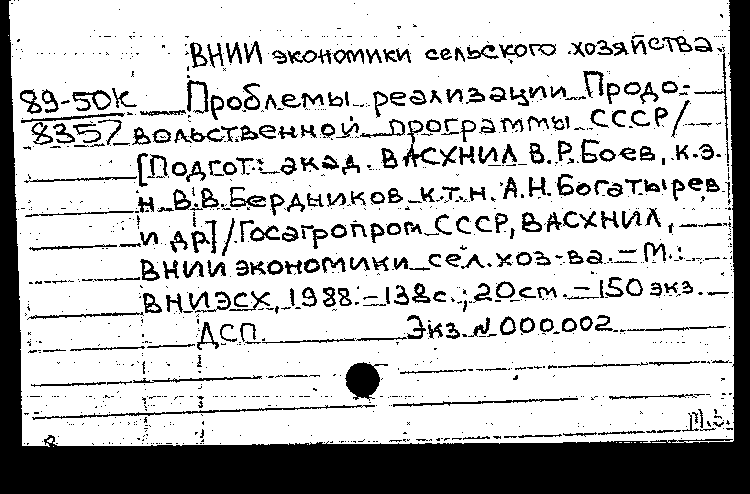 ВНИИ экономики сельского хозяйства.
89-50к Проблемы реализации Продо-
8357 вольственной программы СССР/
[Подгот.: акад. ВАСХНИЛ В.Р.Боев, к.э.
н. В.В.Бердников к.т.н. А.Н.Богатырев
и др.]/Госагропром СССР, ВАСХНИЛ,
ВНИИ экономики сел. хоз-ва. – М.:
ВНИЭСХ, 1988. – 138с.; 20см. – 150 экз.
ДСП. Экз. № 000002